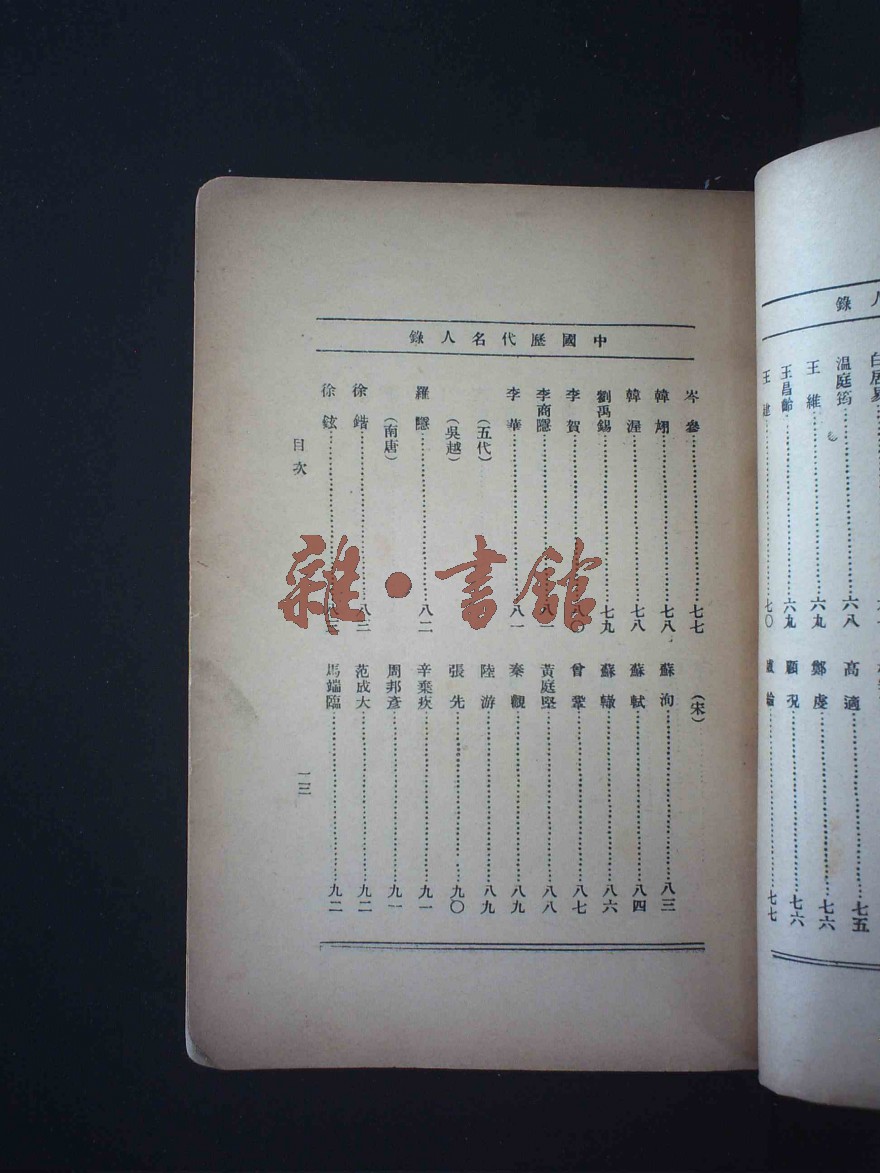 中國歷代名人錄
岑參 七七
韓翃 七八
韓渥 七八
劉禹錫 七九
李賀 八〇
李商隱 八一
李華 八一
(五代)
(吳越)
羅隱 八二
(南唐)
徐鍇 八三
徐鉉 八三
(宋)
蘇洵 八三
蘇軾 八四
蘇轍 八六
曾鞏 八七
黃庭堅 八八
秦觀 八九
陸游 八九
張先 九〇
辛棄疾 九一
周邦彥 九一
范成大 九二
馬端臨 九二
目次
一三
雜·書館
人錄
白居易
溫庭筠 六八
王維 六九
王昌齡 六九
王建 七〇
高適 七五
鄭虔 七六
顧況 七六
盧綸 七七